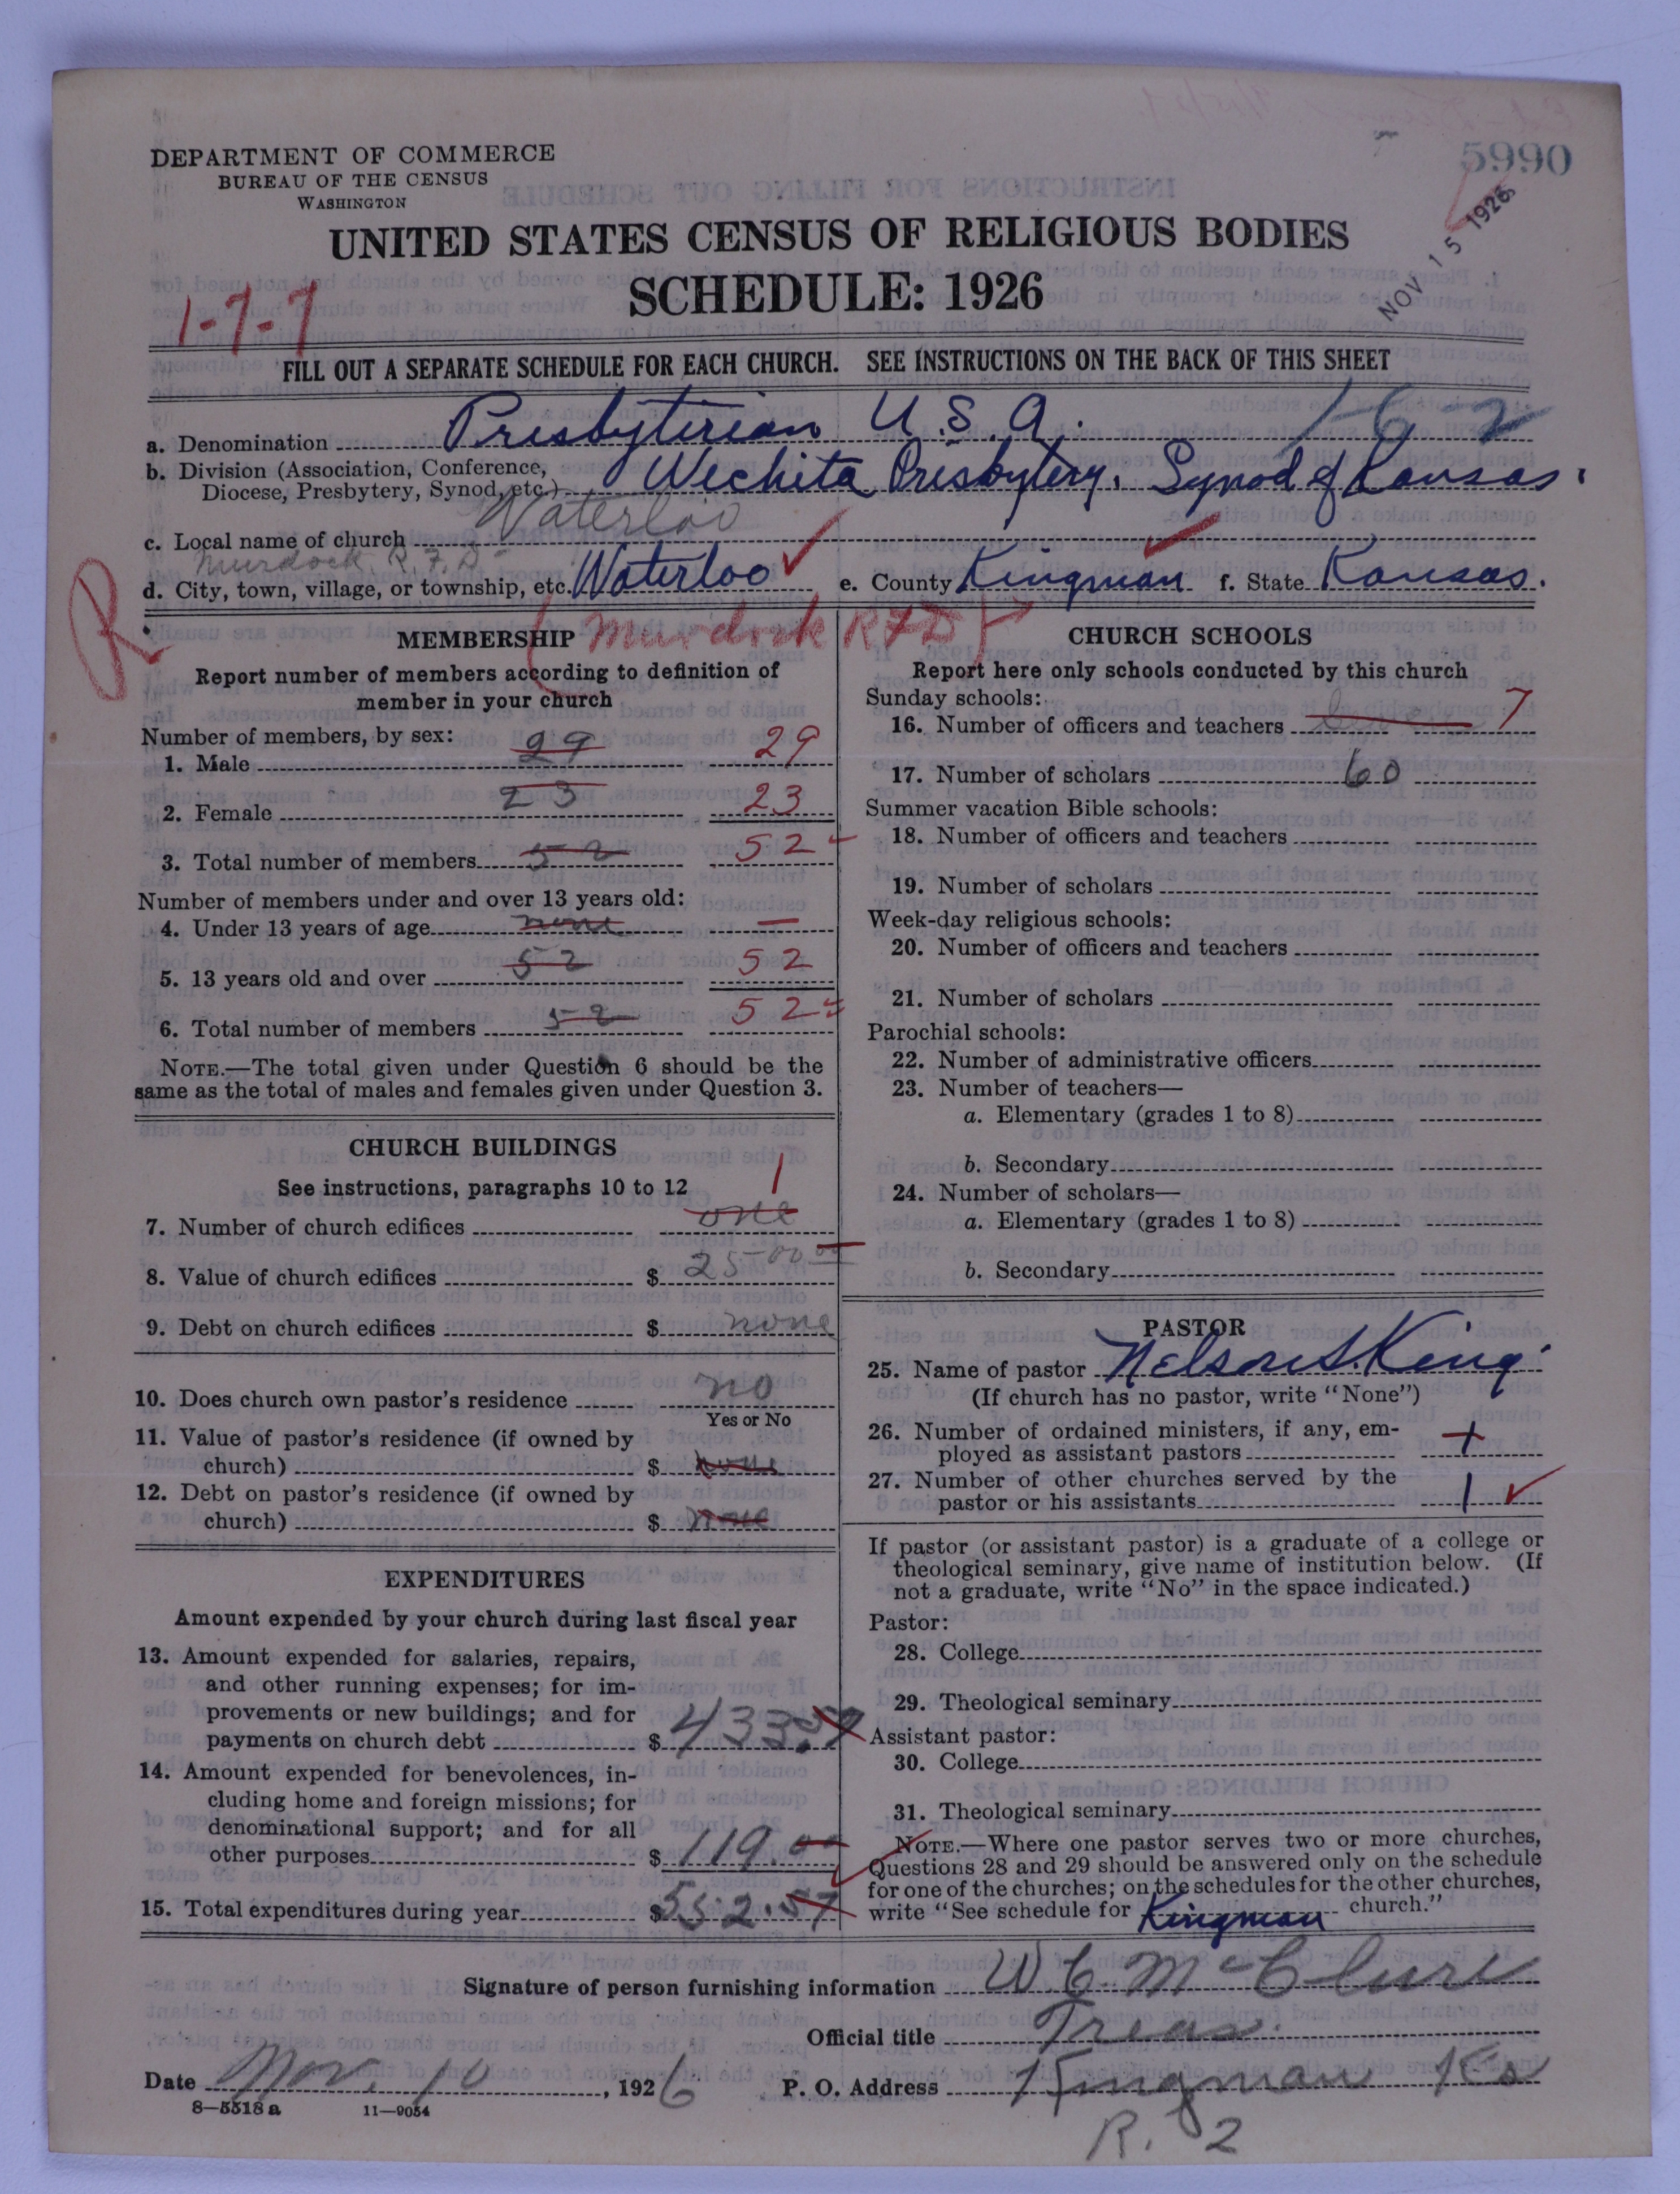 5990
NOV 15 1926
DEPARTMENT OF COMMERCE
BUREAU OF THE CENSUS
WASHINGTON
UNITED STATES CENSUS OF RELIGIOUS BODIES
SCHEDULE: 1926
1-7-7
FILL OUT A SEPARATE SCHEDULE FOR EACH CHURCH. SEE INSTRUCTIONS ON THE BACK OF THIS SHEET
a. Denomination Presbyterian U.S.A. 1-6-2
b. Division (Association, Conference,
Diocese, Presbytery, Synod, etc.) Wechita Presbytery. Synod of Kansas.
c. Local name of church Waterloo
Murdock. R.F.D
d. City, town, village, or township, etc. Waterloo e. County Kingman f. State Kansas.
R
(Murdock RFD)
MEMBERSHIP
Report number of members according to definition of
member in your church
Number of members, by sex:
1. Male 29 29
2. Female 23 23
3. Total number of members 52 52
Number of members under and over 13 years old:
4. Under 13 years of age none —
5. 13 years old and over 52 52
6. Total number of members 52 52
NOTE.—The total given under Question 6 should be the
same as the total of males and females given under Question 3.
CHURCH BUILDINGS
See instructions, paragraphs 10 to 12
1
7. Number of church edifices one
8. Value of church edifices $ 2500 00
9. Debt on church edifices $ none
10. Does church own pastor's residence no
Yes or No
11. Value of pastor's residence (if owned by
church) $ none
12. Debt on pastor's residence (if owned by
church) $ none
EXPENDITURES
Amount expended by your church during last fiscal year
13. Amount expended for salaries, repairs,
and other running expenses; for im-
provements or new buildings; and for
payments on church debt $ 433.57
14. Amount expended for benevolences, in-
cluding home and foreign missions; for
denominational support; and for all
other purposes $ 119.00
15. Total expenditures during year $ 552.57
CHURCH SCHOOLS
Report here only schools conducted by this church
Sunday schools:
16. Number of officers and teachers 7
17. Number of scholars 60
Summer vacation Bible schools:
18. Number of officers and teachers
19. Number of scholars
Week-day religious schools:
20. Number of officers and teachers
21. Number of scholars
Parochial schools:
22. Number of administrative officers
23. Number of teachers—
a. Elementary (grades 1 to 8)
b. Secondary
24. Number of scholars—
a. Elementary (grades 1 to 8)
b. Secondary
PASTOR
25. Name of pastor Nelson S. King
(If church has no pastor, write "None")
26. Number of ordained ministers, if any, em-
ployed as assistant pastors
27. Number of other churches served by the
pastor or his assistants 1
If pastor (or assistant pastor) is a graduate of a college or
theological seminary, give name of institution below. (If
not a graduate, write "No" in the space indicated.)
Pastor:
28. College
29. Theological seminary
Assistant pastor:
30. College
31. Theological seminary
NOTE.—Where one pastor serves two or more churches,
Questions 28 and 29 should be answered only on the schedule
for one of the churches; on the schedules for the other churches,
write "See schedule for Kingman church."
Signature of person furnishing information W C McClure
Official title Treas.
Date Nov. 10, 1926 P. O. Address Kingman Ks
R. 2
8—5518 a 11—9054